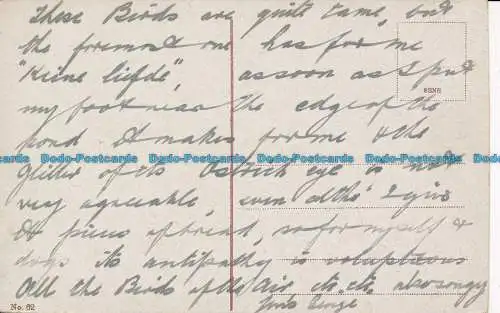 These Birds are quite tame, but
the foremost one has for me
"Keine liefde", as soon as I put
my foot near the edge of the
pond it makes for me & the
glitter of its Ostrich eye is not
very agreeable, even altho' I give
it pieces of bread, so for myself &
dogs its antipathy is voluptuous
All the Birds of the air etc. etc. also
No. 62
Dodo-Postcards Dodo-Postcards Dodo-Postcards Dodo-Postcards Dodo-Postcards Dodo-Postcards